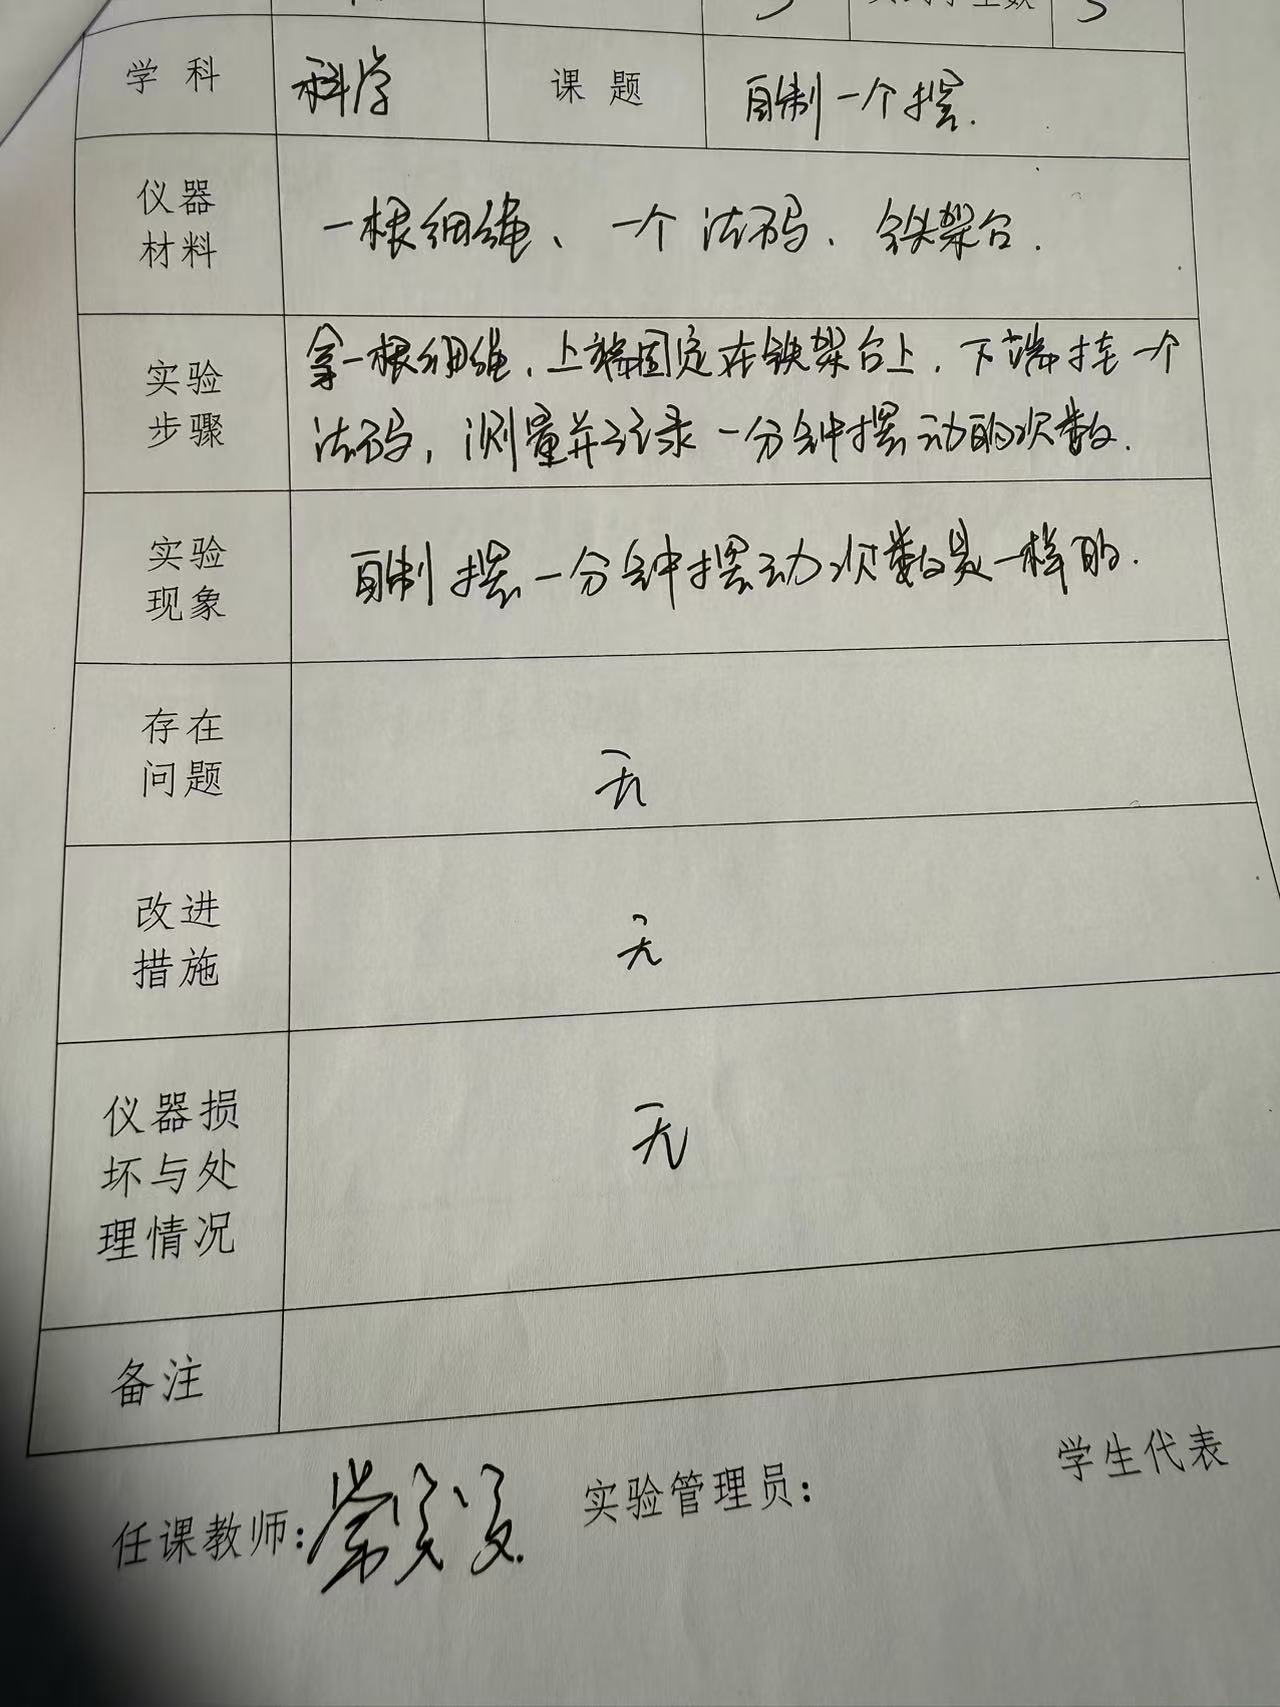 学科 科学 课题 自制一个摆.
仪器
材料
一根细绳、一个法码、铁架台.
实验
步骤
拿一根细绳,上端固定在铁架台上,下端挂一个
法码,测量并记录一分钟摆动的次数.
实验
现象
自制摆一分钟摆动次数是一样的.
存在
问题
无
改进
措施
无
仪器损
坏与处
理情况
无
备注
任课教师: 实验管理员: 学生代表